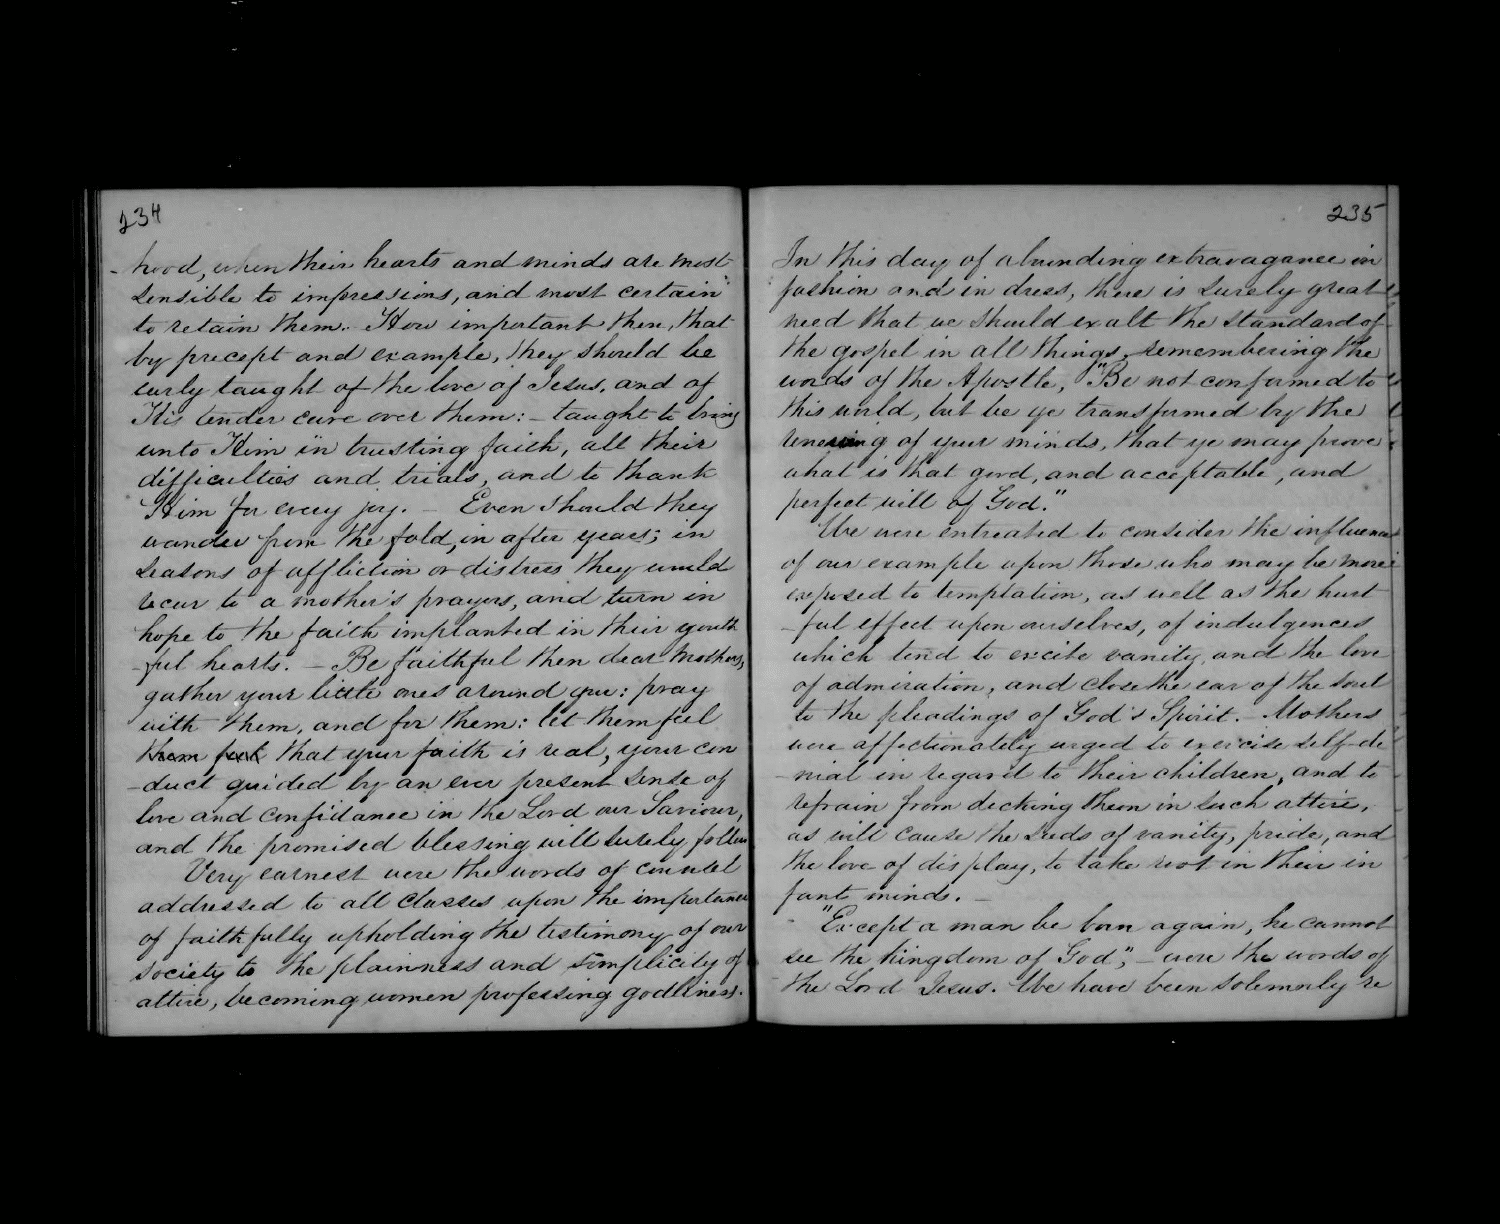 234
-hood, when their hearts and minds are most
sensible to impressions, and most certain
to retain them. How important then, that
by precept and example, they should be
early taught of the love of Jesus, and of
His tender care over them: - taught to bring
unto Him in trusting faith, all their
difficulties and trials, and to thank
Him for every joy. - Even should they
wander from the fold, in after years; in
seasons of affliction or distress they would
recur to a mother's prayers, and turn in
hope to the faith implanted in their youth
-ful hearts. - Be faithful then dear Mothers,
gather your little ones around you: pray
with them, and for them: let them feel
them feel that your faith is real, your con
-duct guided by an ever present sense of
love and confidance in the Lord our Saviour,
and the promised blessing will surely follow
Very earnest were the words of counsel
addressed to all classes upon the importance
of faithfully upholding the testimony of our
society to the plainness and simplicity of
attire, becoming women professing godliness.
235
In this day of abounding extravagance in
fashion and in dress, there is surely great
need that we should exalt the standard of
the gospel in all things, remembering the
words of the Apostle, "Be not conformed to
this world, but be ye transformed by the
renewing of your minds, that ye may prove
what is that good, and acceptable, and
perfect will of God."
We were entreated to consider the influence
of our example upon those who may be more
exposed to temptation, as well as the hurt
-ful effect upon ourselves, of indulgences
which tend to excite vanity, and the love
of admiration, and close the ear of the soul
to the pleadings of God's Spirit. - Mothers
were affectionately urged to exercise self-de
-nial in regard to their children, and to
refrain from decking them in such attire,
as will cause the seeds of vanity, pride, and
the love of display, to take root in their in
fant minds. -
"Except a man be born again, he cannot
see the kingdom of God", - were the words of
the Lord Jesus. We have been solemnly re